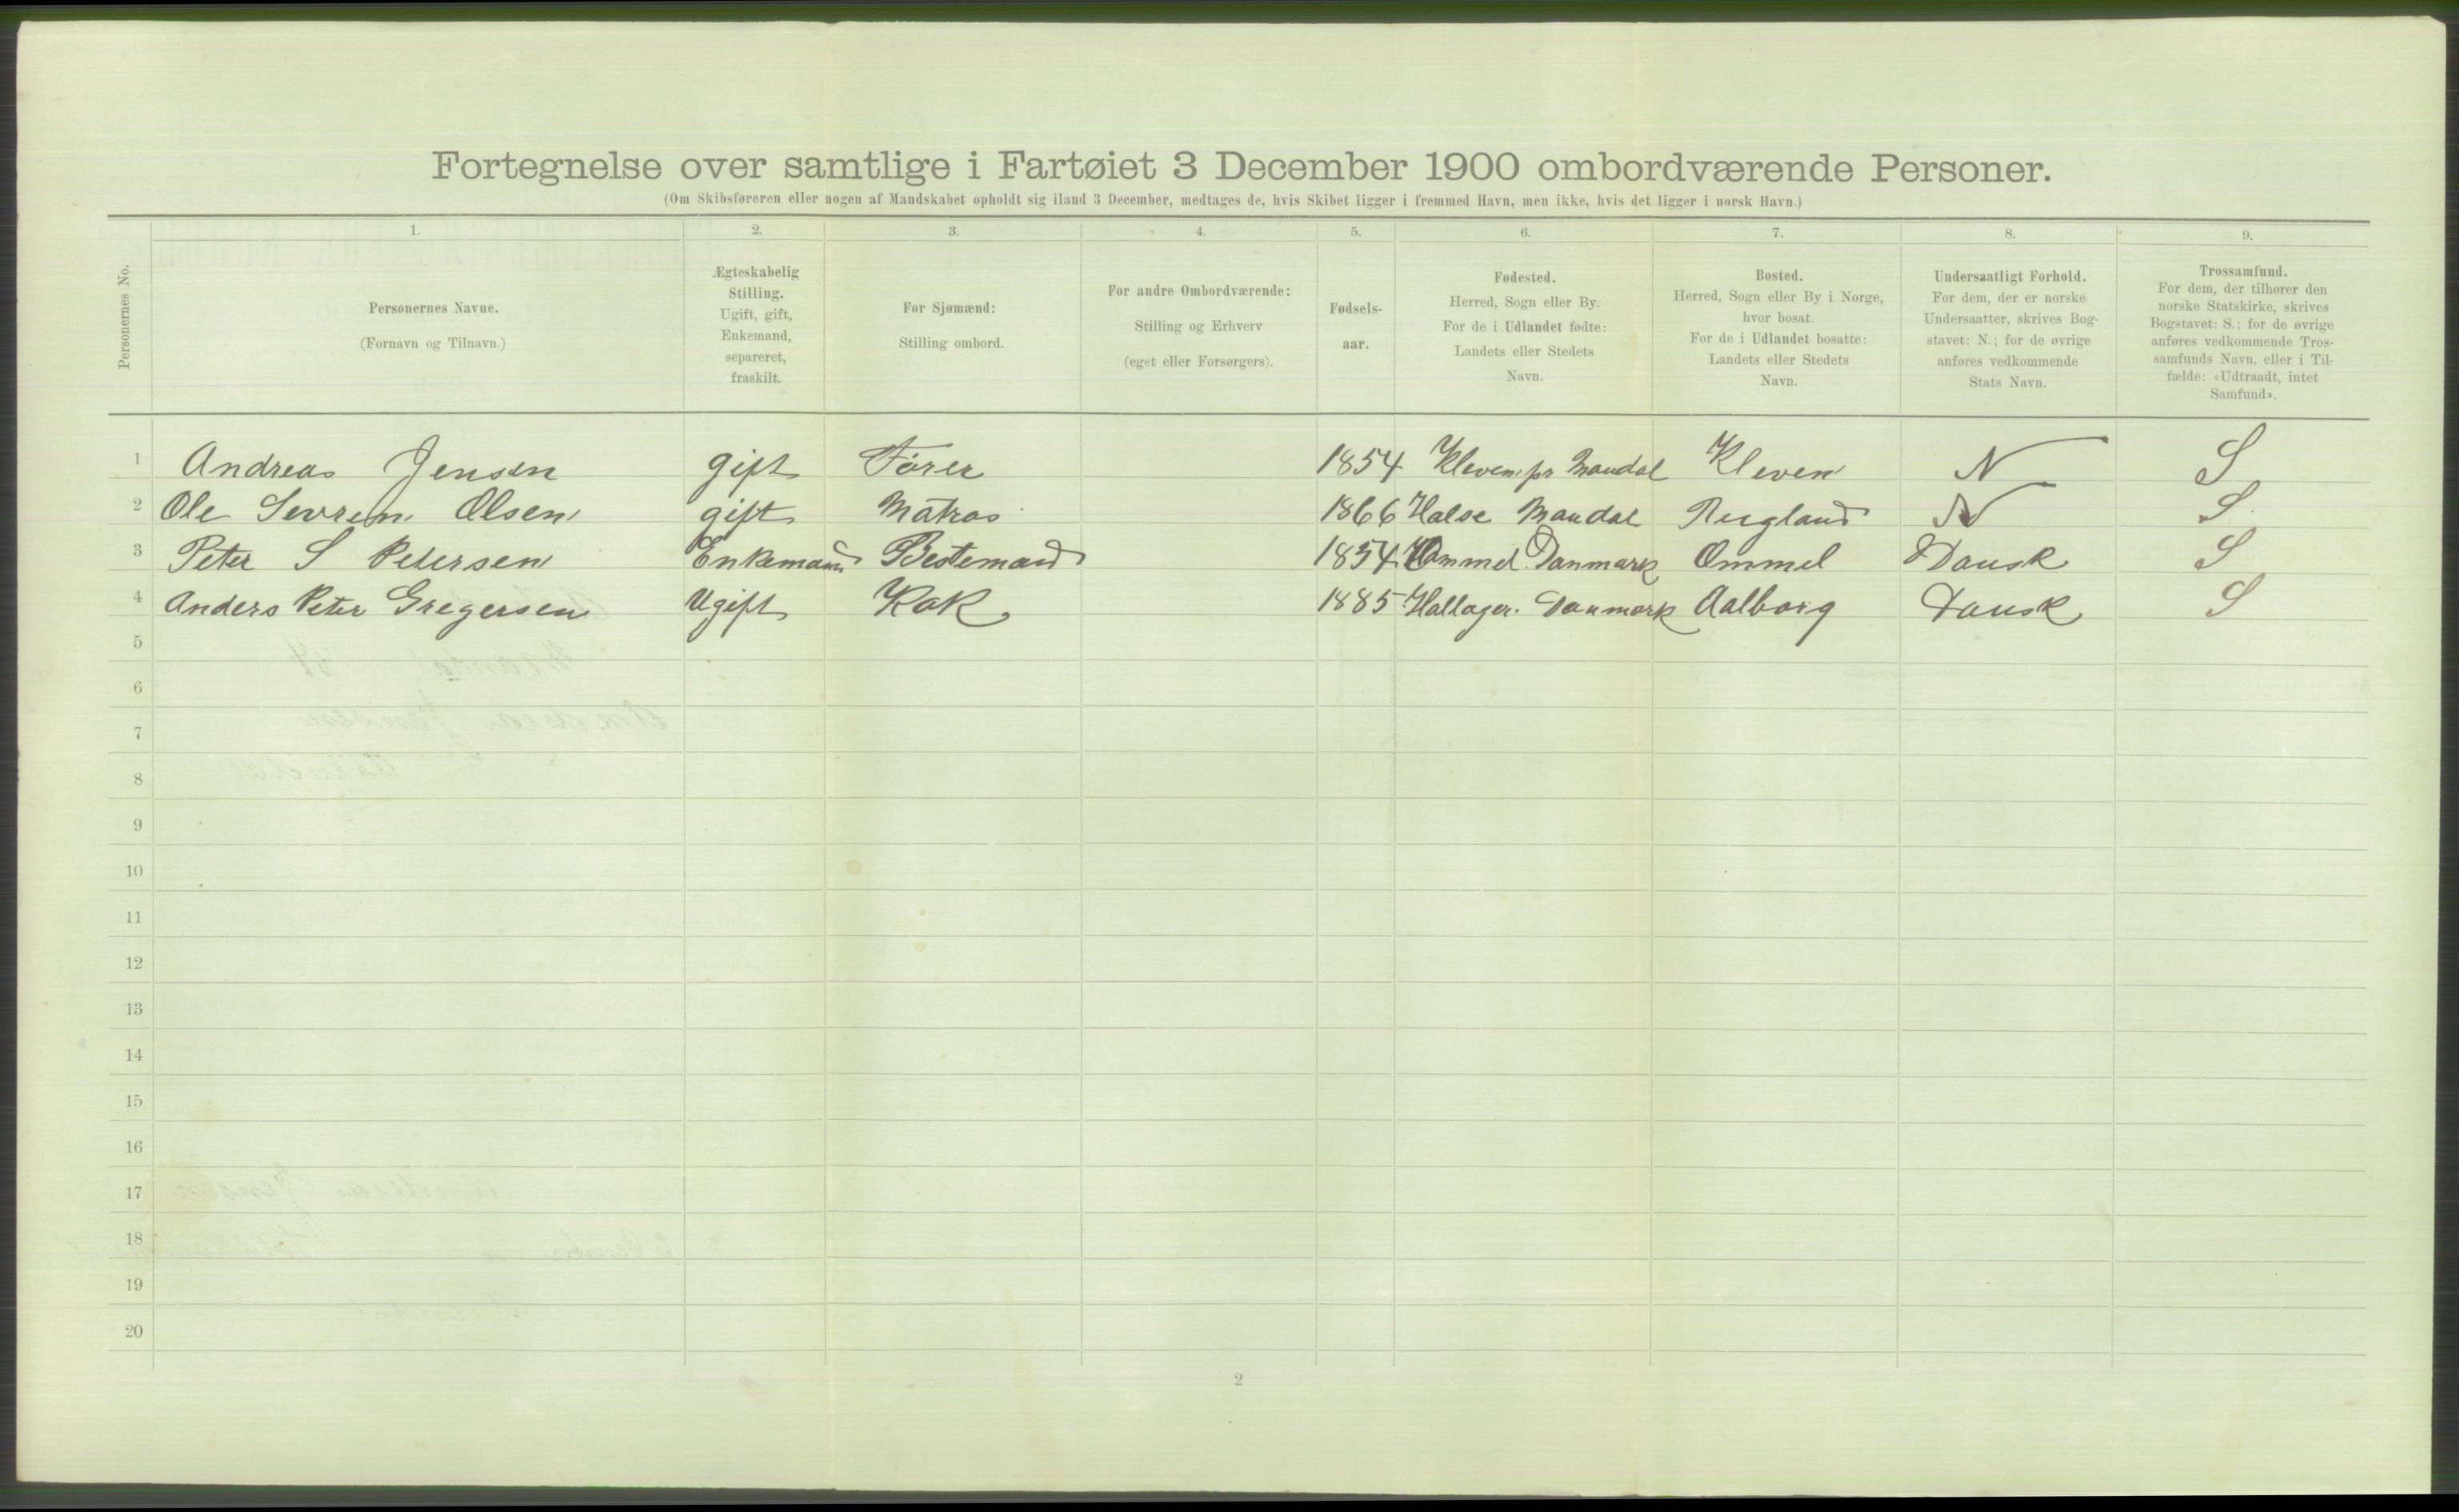 Fortegnelse over samtlige i Fartøiet 3 December 1900 ombordværende Personer.
(Om Skibsføreren eller nogen af Mandskabet opholdt sig iland 3 December, medtages de, hvis Skibet ligger i fremmed Havn, men ikke, hvis det ligger i norsk Havn.)
Personernes No.
1. 2. 3. 4. 5. 6. 7. 8. 9.
Personernes Navne.
(Fornavn og Tilnavn.)
Ægteskabelig
Stilling.
Ugift, gift,
Enkemand,
separeret,
fraskilt.
For Sjømænd:
Stilling ombord.
For andre Ombordværende:
Stilling og Erhverv
(eget eller Forsørgers).
Fødsels-
aar.
Fødested.
Herred, Sogn eller By.
For de i Udlandet fødte:
Landets eller Stedets
Navn.
Bosted.
Herred, Sogn eller By i Norge,
hvor bosat.
For de i Udlandet bosatte:
Landets eller Stedets
Navn.
Undersaatligt Forhold.
For dem, der er norske
Undersaatter, skrives Bog-
stavet: N.; for de øvrige
anføres vedkommende
Stats Navn.
Trossamfund.
For dem, der tilhører den
norske Statskirke, skrives
Bogstavet: S.; for de øvrige
anføres vedkommende Tros-
samfunds Navn, eller i Til-
fælde: «Udtraadt, intet
Samfund».
1 Andreas Jensen gift Fører 1854 Kleven pr Mandal Kleven N S
2 Ole Sevren Olsen gift Matros 1866 Halse Mandal N S
3 Peter S Petersen Enkemand Bestemand 1854 Ommel Danmark Ommel Dansk S
4 Anders Peter Gregersen Ugift Kok 1885 Hallager. Danmark Aalborg Dansk S
5
6
7
8
9
10
11
12
13
14
15
16
17
18
19
20
2